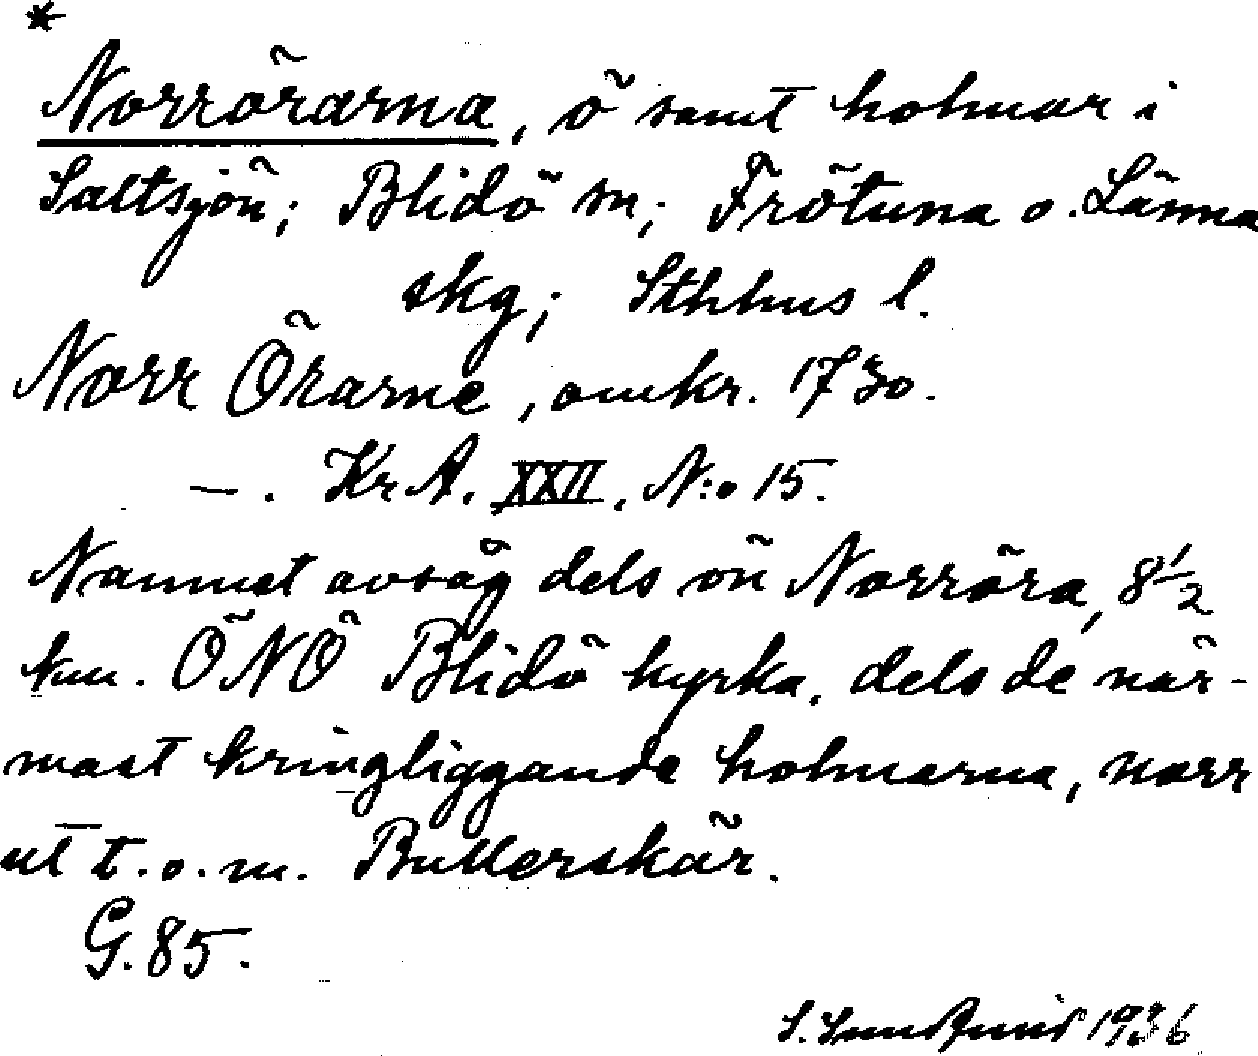 *
Norrörarna, ö samt holmar i
Saltsjön; Blidö sn; Frötuna o. Länna
skg; Sthlms l.
Norr Örarne, omkr. 1730.
—. KrA. XXII. N:o 15.
Namnet avsåg dels ön Norröra, 8 1/2
km. ÖNÖ Blidö kyrka, dels de när-
mast kringliggande holmarna, norr
ut t.o.m. Bullerskär.
G. 85.
1936